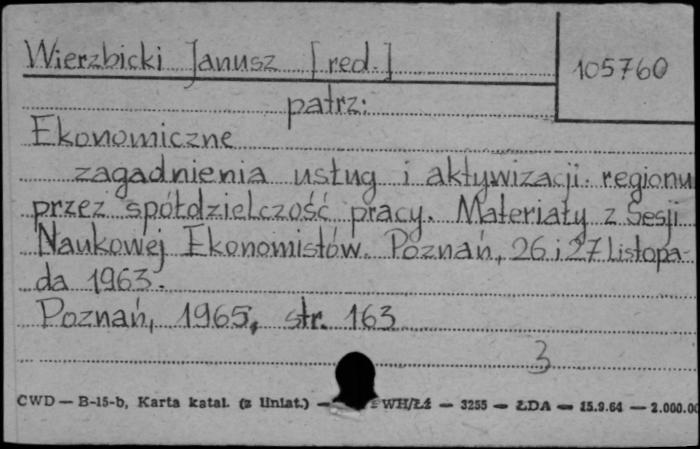 Wierzbicki Janusz [red.]
105760
patrz:
Ekonomiczne
zagadnienia usług i aktywizacji regionu
przez spółdzielczość pracy. Materiały z Sesji
Naukowej Ekonomistów. Poznań, 26 i 27 listopa-
da 1963.
Poznań, 1965, str. 163
3
CWD — B-15-b, Karta katal. (z liniat.) — WH/Łź — 3255 — ŁDA — 15.9.64 — 2.000.00